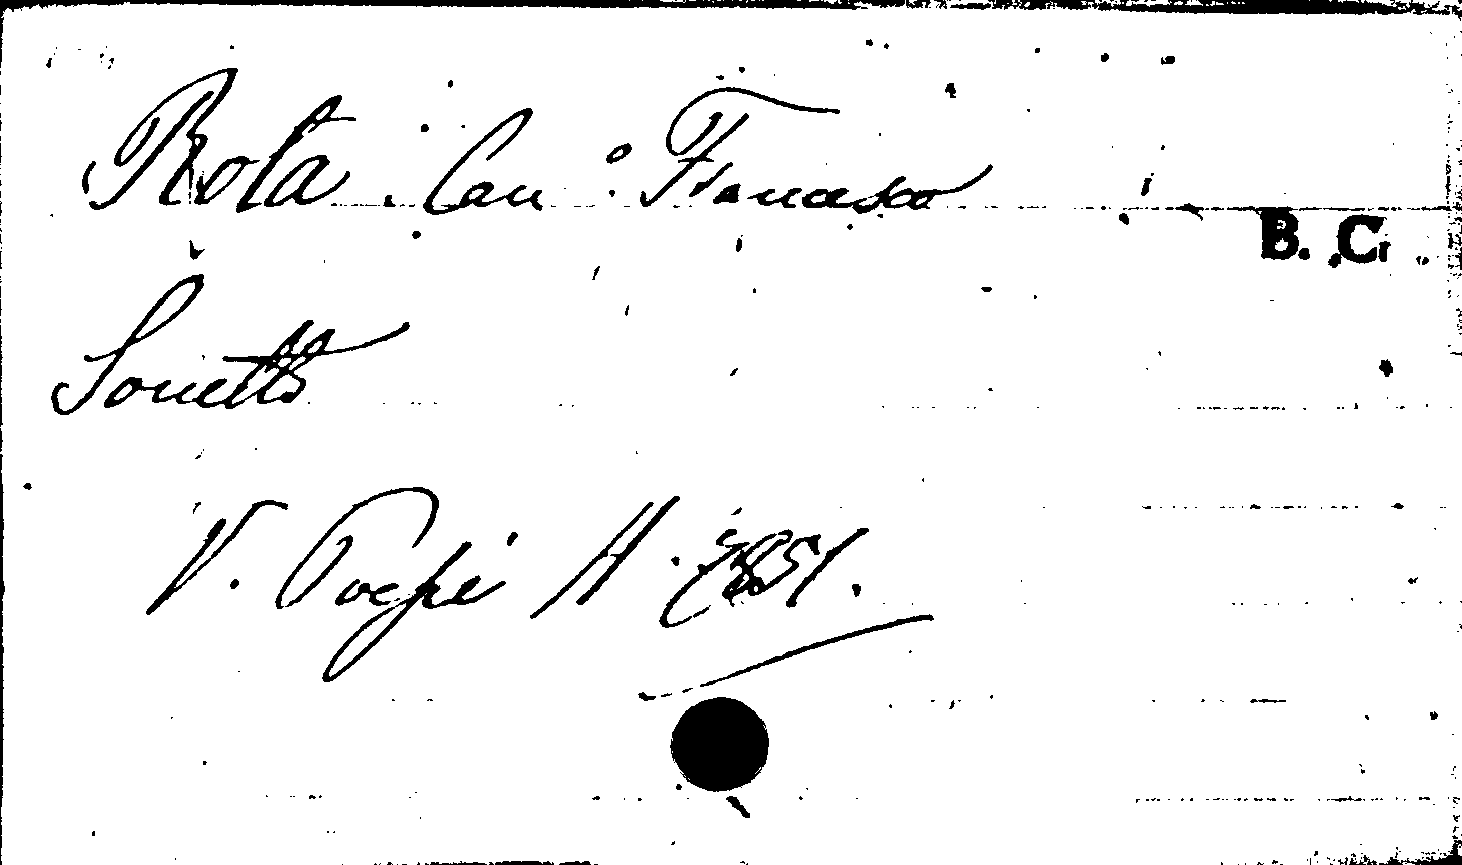 Rota. Can.º Francesco
B. C.
Sonetto
V. Poepi H. 2851.